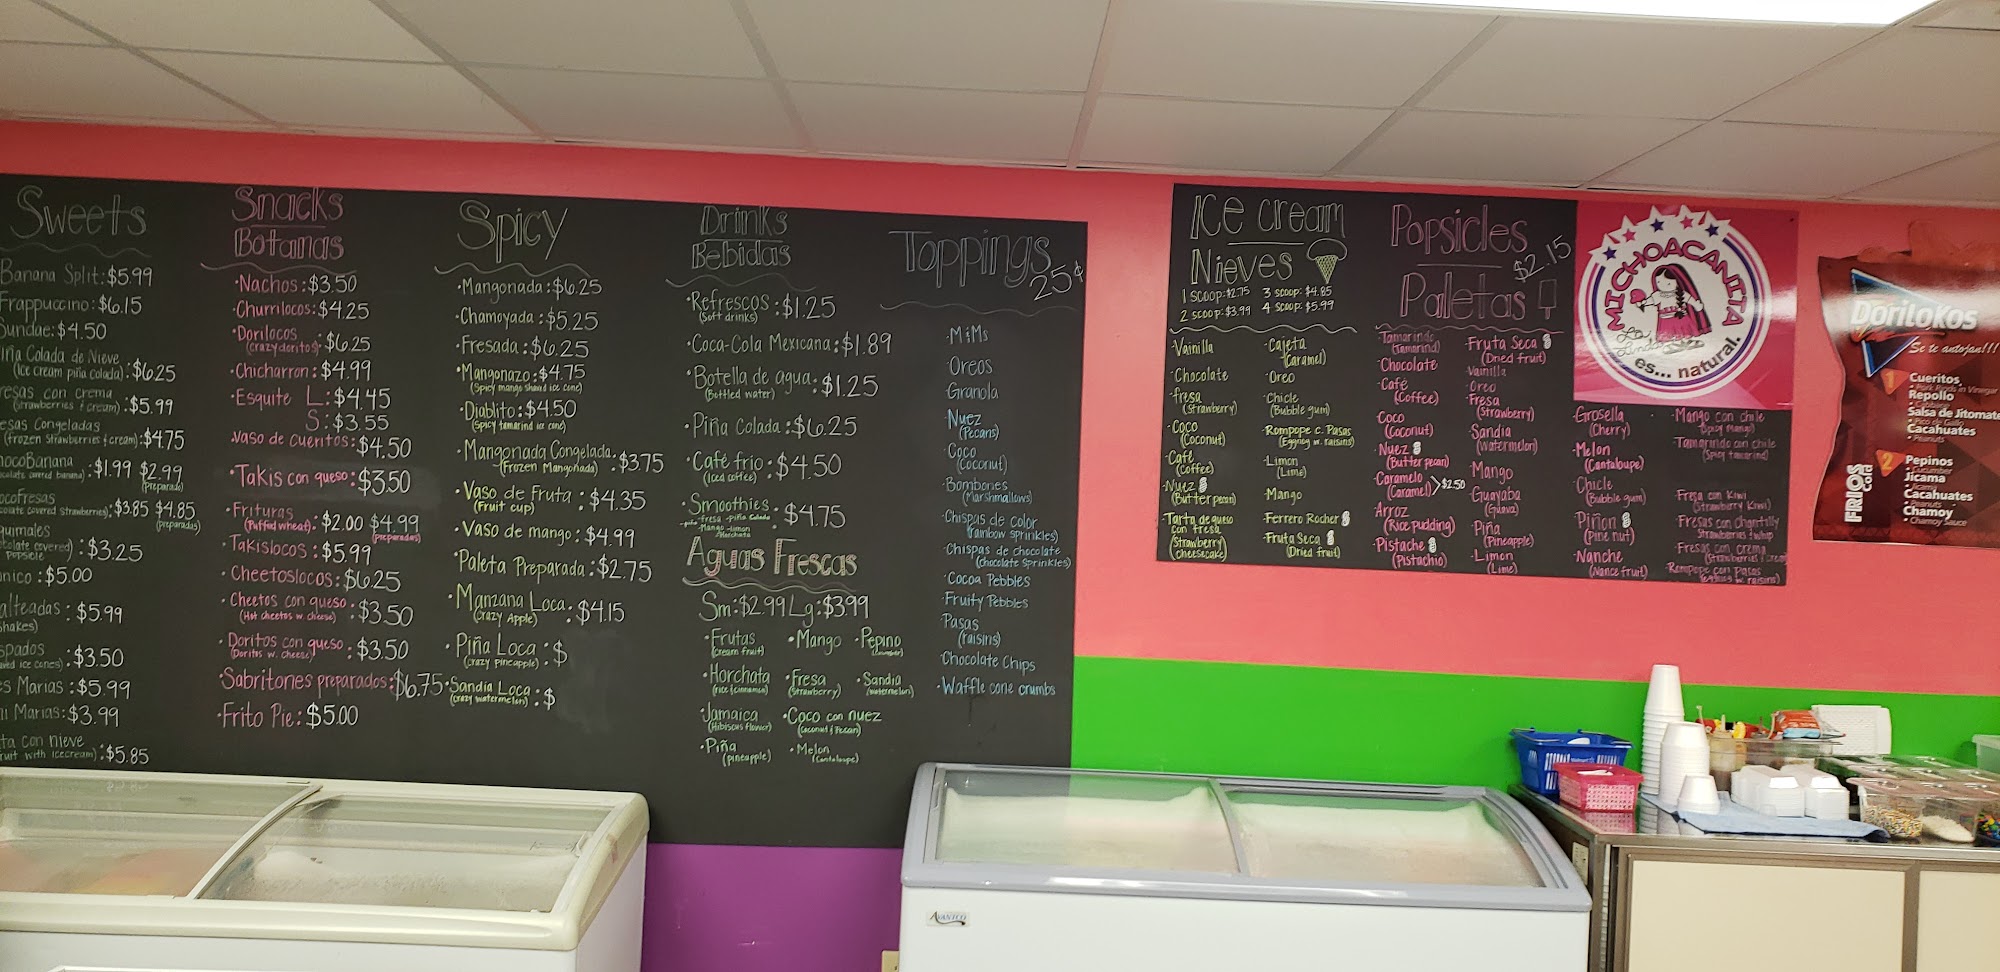 Sweets
Banana Split: $5.99
Frappuccino: $6.15
Sundae: $4.50
Piña Colada de Nieve
(Ice cream piña colada): $6.25
resas con crema
(strawberries & cream): $5.99
esas Congeladas
(frozen strawberries & cream): $4.75
hocoBanana
colate covered banana): $1.99 $2.99
(preparada)
ocoFresas
colate covered strawberries): $3.85 $4.85
(preparadas)
quimales
olate covered)
popsicle : $3.25
nico: $5.00
alteadas
shakes) : $5.99
spados
ved ice cones) : $3.50
s Marias: $5.99
ni Marias: $3.99
ta con nieve
ruit with icecream): $5.85
Snacks
Botanas
·Nachos: $3.50
·Churrilocos: $4.25
·Dorilocos
(crazy doritos): $6.25
·Chicharron: $4.99
·Esquite L: $4.45
S: $3.55
·Vaso de Cueritos: $4.50
·Takis con queso: $3.50
·Frituras
(Puffed wheat): $2.00 $4.99
(preparadas)
·Takislocos: $5.99
·Cheetoslocos: $6.25
·Cheetos con queso
(Hot cheetos w. cheese) : $3.50
·Doritos con queso
(Doritos w. cheese) : $3.50
·Sabritones preparados: $6.75
·Frito Pie: $5.00
Spicy
·Mangonada: $6.25
·Chamoyada: $5.25
·Fresada: $6.25
·Mangonazo: $4.75
(Spicy mango shaved ice cone)
·Diablito: $4.50
(Spicy tamarind ice cone)
·Mangonada Congelada
(Frozen Mangonada) : $3.75
·Vaso de Fruta: $4.35
(Fruit cup)
·Vaso de mango: $4.99
·Paleta Preparada: $2.75
·Manzana Loca: $4.15
(Crazy Apple)
·Piña Loca: $
(Crazy pineapple)
·Sandia Loca: $
(Crazy watermelon)
Drinks
Bebidas
·Refrescos: $1.25
(Soft drinks)
·Coca-Cola Mexicana: $1.89
·Botella de agua: $1.25
(Bottled water)
·Piña Colada: $6.25
·Café frio: $4.50
(Iced coffee)
·Smoothies: $4.75
-fresa -Piña Colada
-Mango -limon
-Horchata
Aguas Frescas
Sm: $2.99 Lg: $3.99
·Frutas
(Cream fruit)
·Mango
·Pepino
(cucumber)
·Horchata
(rice & cinnamon)
·Fresa
(Strawberry)
·Sandia
(watermelon)
·Jamaica
(Hibiscus flower)
·Coco con nuez
(Coconut & Pecan)
·Piña
(pineapple)
·Melon
(Cantaloupe)
Toppings
25¢
·M&Ms
·Oreos
·Granola
·Nuez
(Pecans)
·Coco
(Coconut)
·Bombones
(Marshmallows)
·Chispas de color
(rainbow sprinkles)
·Chispas de chocolate
(chocolate sprinkles)
·Cocoa Pebbles
·Fruity Pebbles
·Pasas
(raisins)
·Chocolate Chips
·Waffle cone crumbs
Ice cream
Nieves
1 scoop: $2.75 3 scoop: $4.85
2 scoop: $3.99 4 scoop: $5.99
·Vainilla
·Chocolate
·fresa
(Strawberry)
·Coco
(Coconut)
·Café
(Coffee)
·Nuez
(Butter pecan)
·Tarta de queso
con fresa
(Strawberry
cheesecake)
·Cajeta
(Caramel)
·Oreo
·Chicle
(Bubble gum)
·Rompope c. Pasas
(Eggnog w. raisins)
·Limon
(Lime)
·Mango
·Ferrero Rocher
·Fruta Seca
(Dried fruit)
Popsicles
$2.15
Paletas
·Tamarindo
(Tamarind)
·Chocolate
·Café
(Coffee)
·Coco
(Coconut)
·Nuez
(Butter pecan)
·Caramelo
(Caramel) $2.50
·Arroz
(Rice pudding)
·Pistache
(Pistachio)
·Fruta Seca
(Dried fruit)
·Vainilla
·Oreo
·Fresa
(Strawberry)
·Sandia
(Watermelon)
·Mango
·Guayaba
(Guava)
·Piña
(Pineapple)
·Limon
(Lime)
·Grosella
(Cherry)
·Melon
(Cantaloupe)
·Chicle
(Bubble gum)
·Piñon
(Pine nut)
·Nanche
(Nance fruit)
·Mango con chile
(Spicy mango)
·Tamarindo con chile
(Spicy tamarind)
·Fresa con Kiwi
(Strawberry Kiwi)
·Fresas con Chantilly
(Strawberries & whip
·Fresas con crema
(Strawberries & cream
·Rompope con Pasas
(eggnog w. raisins)
MICHOACANITA
es... natural.
Dorilokos
Se te antojan!!!
1 Cueritos
• Pork Rinds in Vinegar
Repollo
• Cabbage
Salsa de Jitomate
• Pico de Gallo
Cacahuates
• Peanuts
2 Pepinos
• Cucumber
Jicama
• Jicama
Cacahuates
• Peanuts
Chamoy
• Chamoy Sauce
FRIOS
Cold
AVANTCO